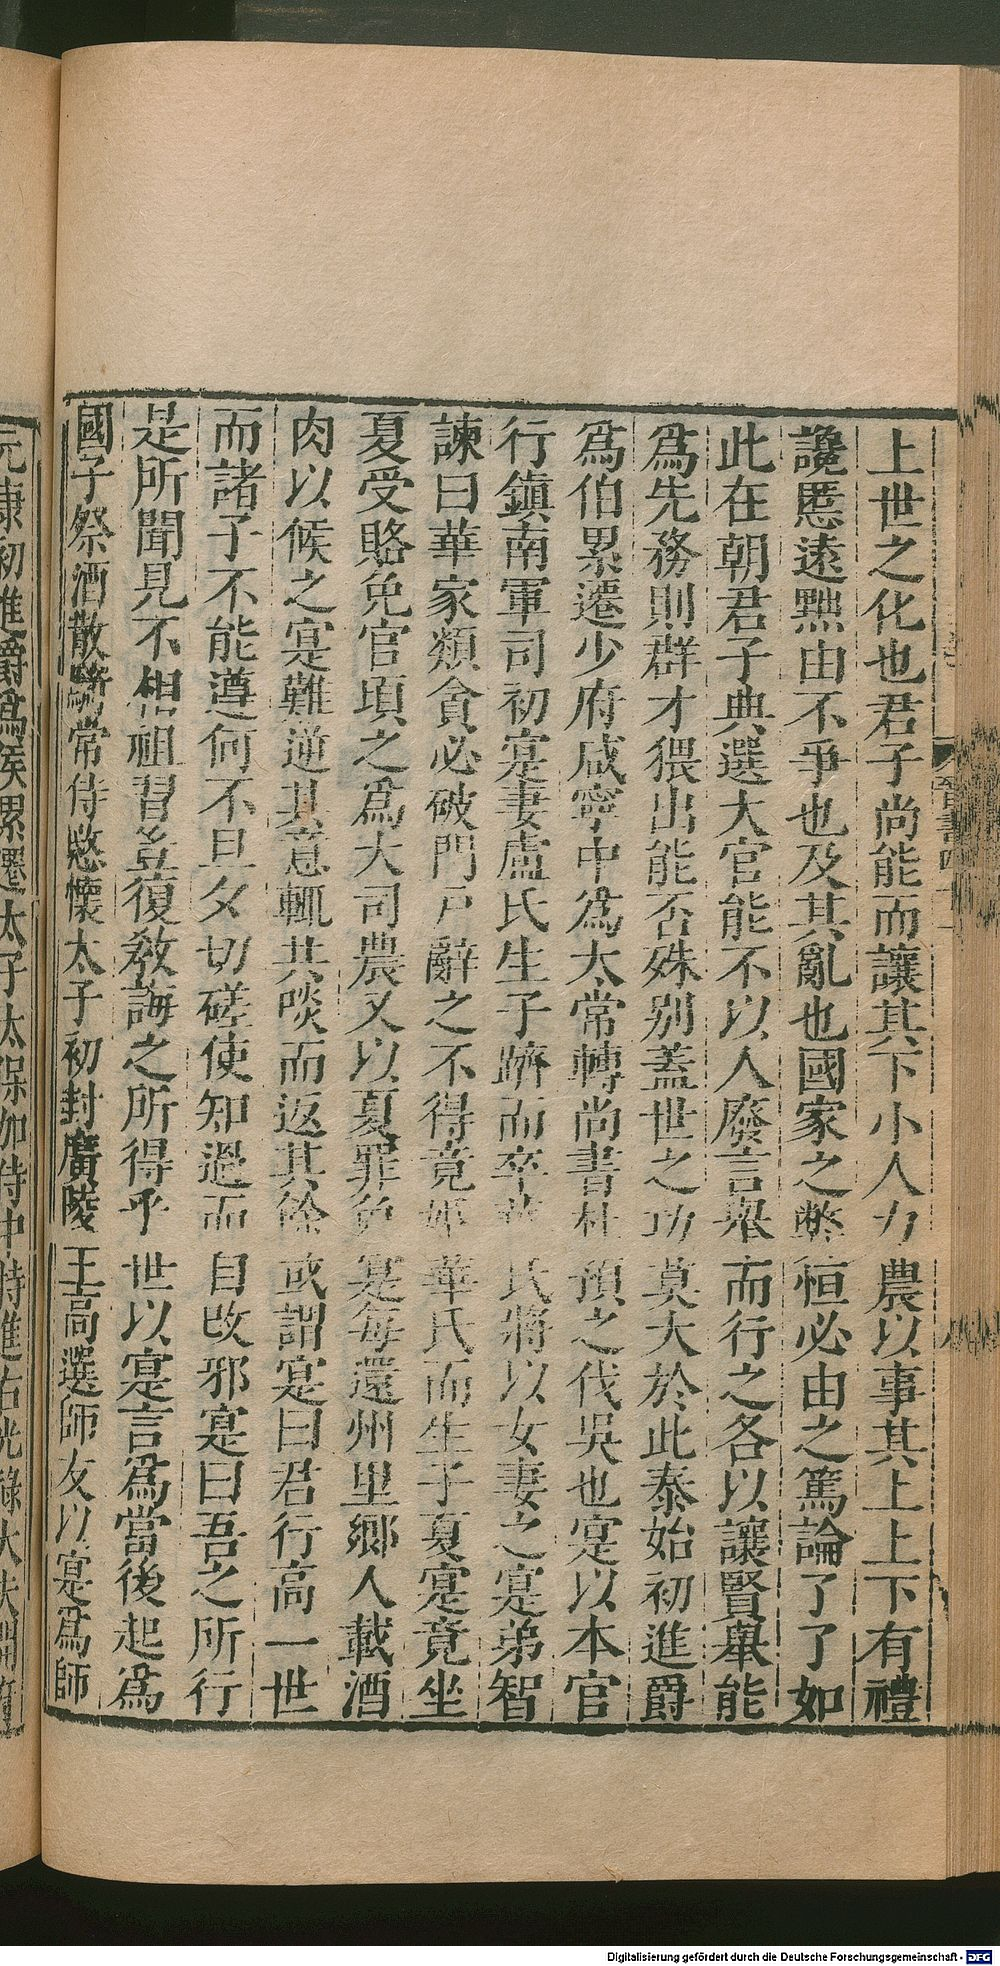 上世之化也君子尚能而讓其下小人力農以事其上上下有禮
讒慝遠黜由不爭也及其亂也國家之弊恒必由之篤論了了如
此在朝君子典選大官能不以人廢言舉而行之各以讓賢舉能
爲先務則群才猥出能否殊别蓋世之功莫大於此泰始初進爵
爲伯累遷少府咸寧中爲太常轉尚書杜預之伐吳也寔以本官
行鎮南軍司初寔妻盧氏生子躋而卒華氏將以女妻之寔弟智
諫曰華家類貪必破門戸辭之不得竟婚華氏而生子夏寔竟坐
夏受賂免官頃之爲大司農又以夏罪免寔每還州里鄉人載酒
肉以候之寔難逆其意輒共啖而返其餘或謂寔曰君行高一世
而諸子不能遵何不旦夕切磋使知過而自改邪寔曰吾之所行
是所聞見不相祖習豈復教誨之所得乎世以寔言爲當後起爲
國子祭酒散騎常侍愍懷太子初封廣陵王高選師友以寔爲師
元康初進爵爲侯累遷太子太保加侍中特進右光祿大夫開
Digitalisierung gefördert durch die Deutsche Forschungsgemeinschaft - DFG